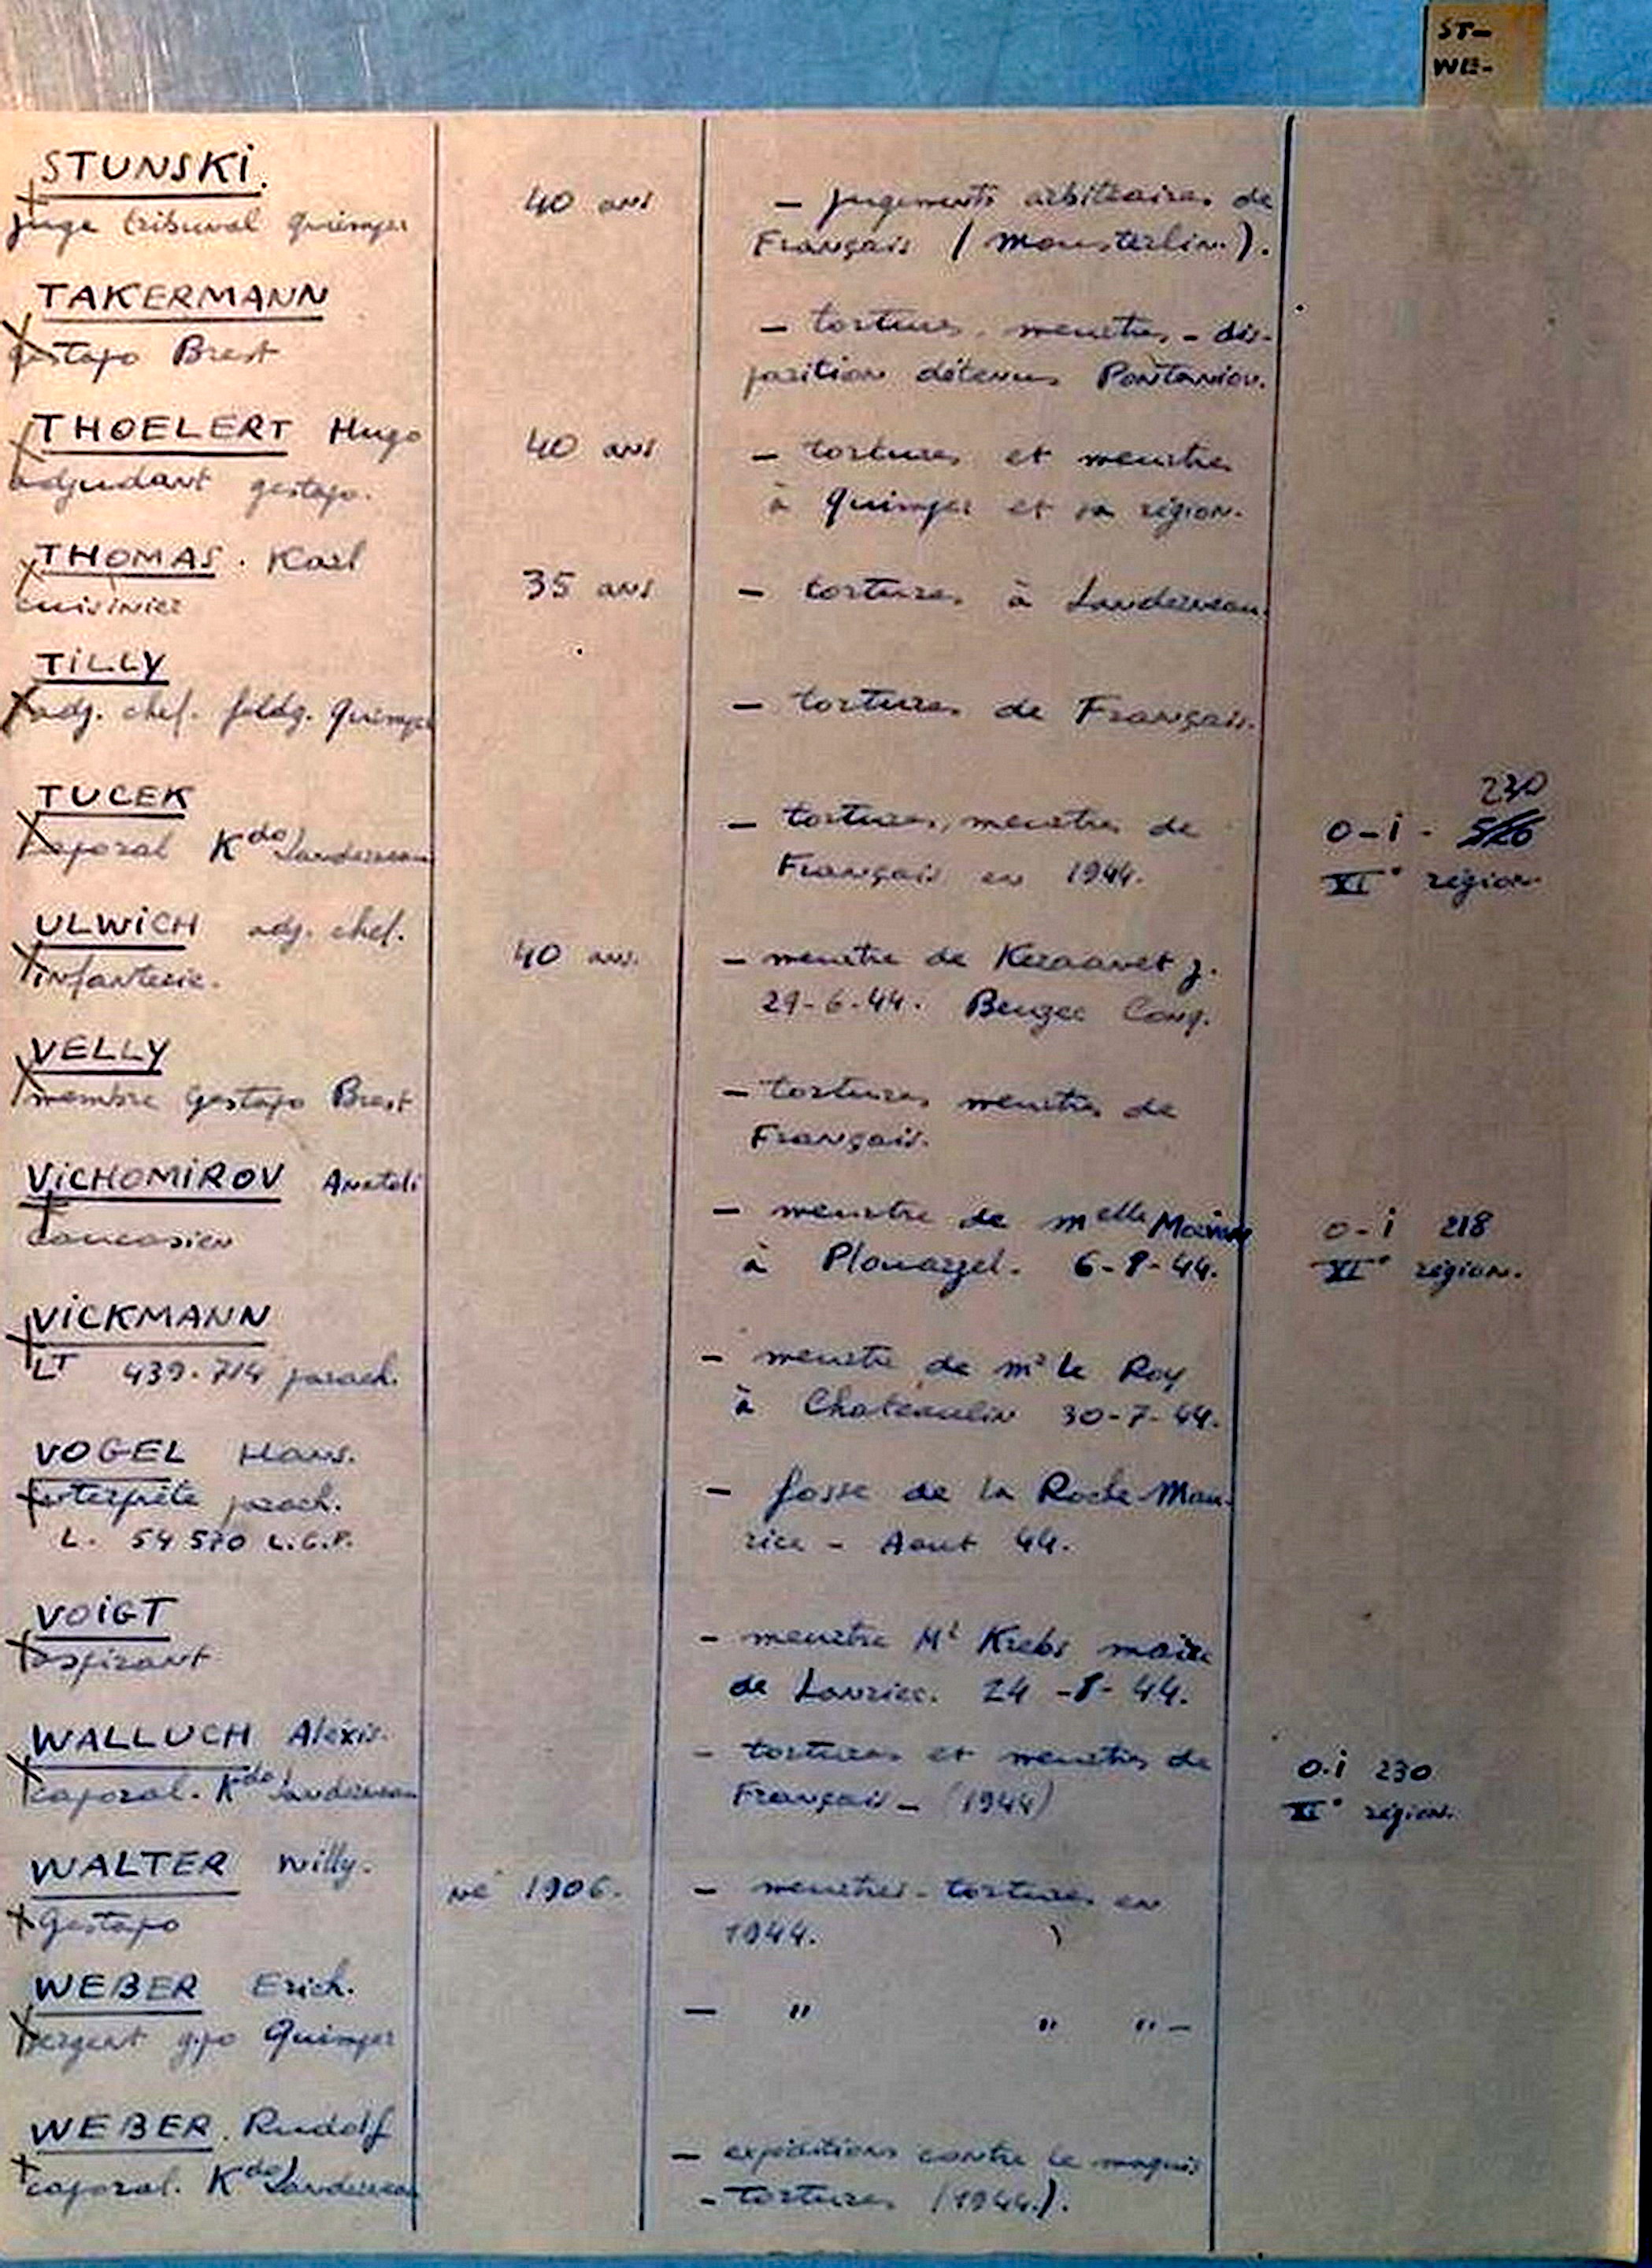 ST-
WE-
STUNSKI.
juge tribunal Quimper
40 ans
- jugements arbitraires de
Français (Mousterlin.).
TAKERMANN
gestapo Brest
- tortures, meurtres - dis-
parition détenus Pontaniou.
THOELERT Hugo
adjudant gestapo.
40 ans
- tortures et meurtres
à Quimper et sa région.
THOMAS. Karl
cuisinier
35 ans
- tortures à Landerneau.
TILLY
adj. chef. feldg. Quimper
- tortures de Français.
TUCEK
caporal Kdo Landerneau
- tortures, meurtres de
Français en 1944.
230
o-i -
XI° région
ULWICH adj. chef.
infanterie.
40 ans.
- meurtre de J.
29-6-44. Beuzec Conq.
VELLY
membre gestapo Brest
- tortures meurtres de
Français.
VICHOMIROV Anatoli
caucasien
- meurtre de melle
à Plouarzel. 6-8-44.
o-i 218
XI° région.
VICKMANN
LT 439.714 parach.
- meurtre de Mr Le Roy
à Chateaulin 30-7-44.
VOGEL Hans.
interprète parach.
L. 54 570 L.G.P.
- fosse de la Roche-Mau-
rice - Aout 44.
VOIGT
aspirant
- meurtre Mr Krebs maire
de Lanriec. 24-8-44.
WALLUCH Aléxis.
caporal. Kdo Landerneau
- tortures et meurtres de
Français - (1944)
o.i 230
XI° région.
WALTER Willy.
Gestapo
né 1906.
- meurtres - tortures en
1944.
WEBER Erich.
sergent g.po Quimper
- " " " -
WEBER. Rudolf
caporal. Kdo Landerneau
- expéditions contre le maquis
- tortures (1944.).